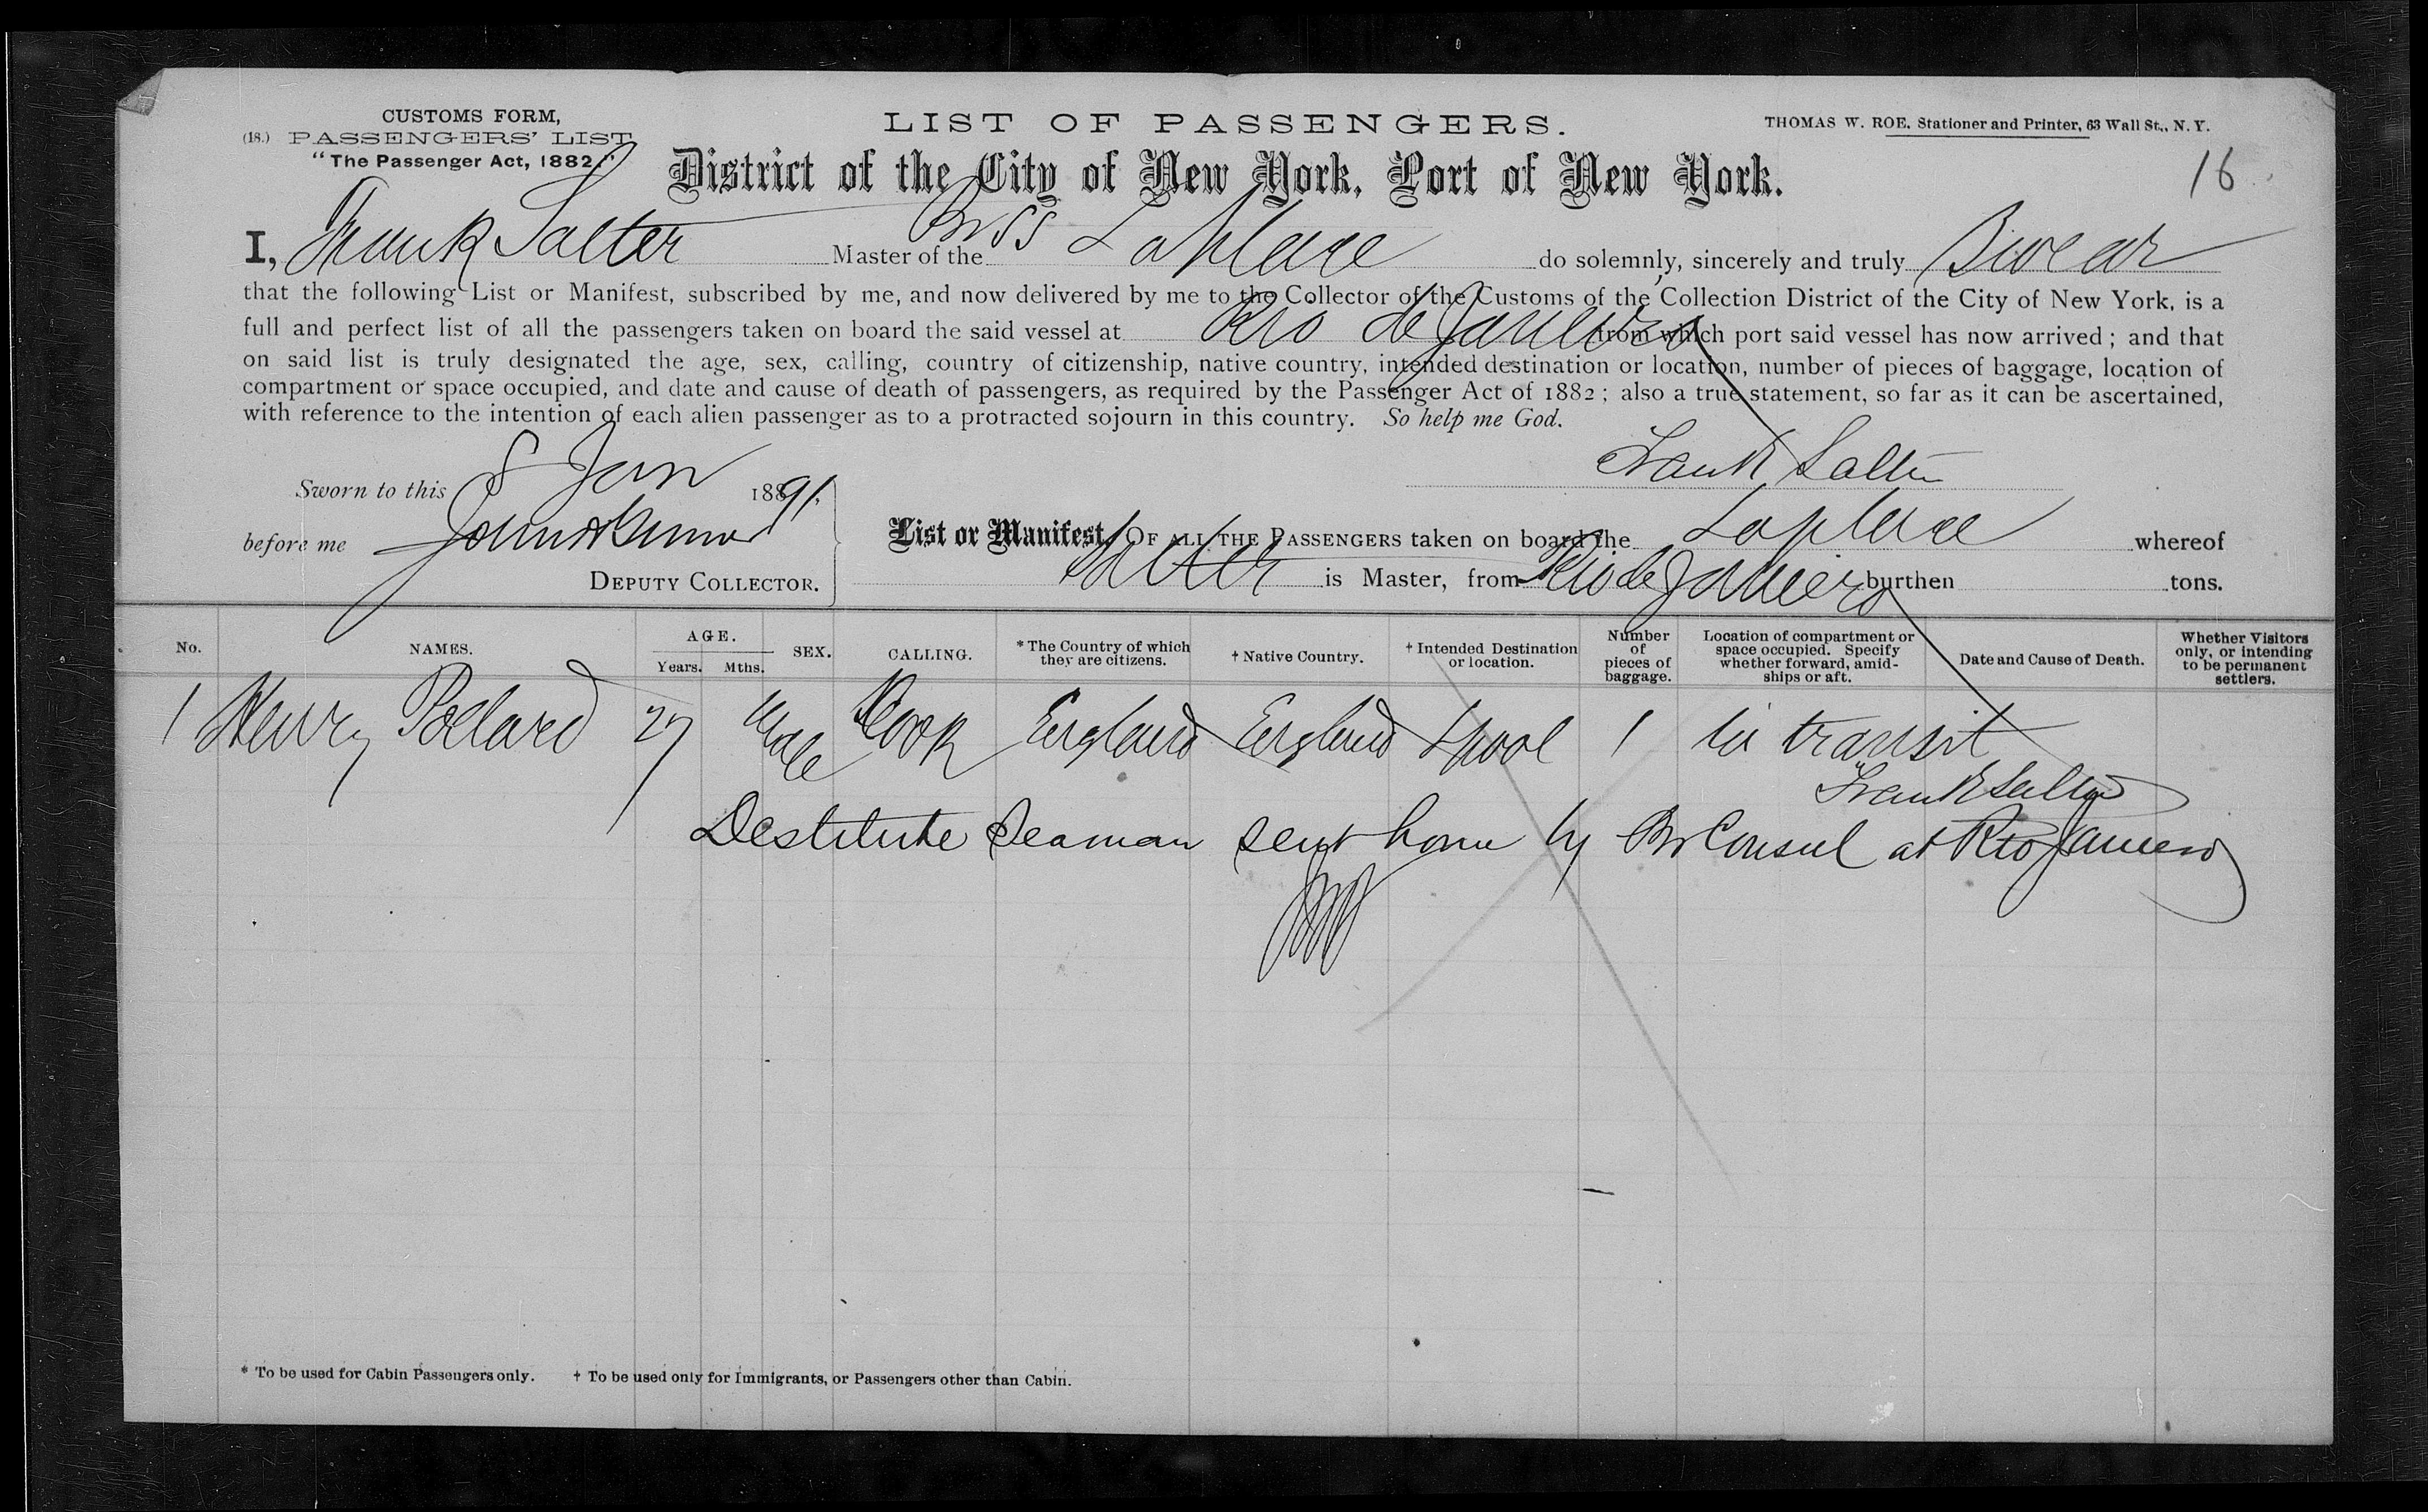 CUSTOMS FORM,
(18.) PASSENGERS' LIST
"The Passenger Act, 1882."
LIST OF PASSENGERS.
THOMAS W. ROE, Stationer and Printer, 63 Wall St., N. Y.
District of the City of New York, Port of New York.
16
I, Frank Salter Master of the Br SS Laplace do solemnly, sincerely and truly Swear
that the following List or Manifest, subscribed by me, and now delivered by me to the Collector of the Customs of the Collection District of the City of New York, is a
full and perfect list of all the passengers taken on board the said vessel at Rio de Janeiro from which port said vessel has now arrived; and that
on said list is truly designated the age, sex, calling, country of citizenship, native country, intended destination or location, number of pieces of baggage, location of
compartment or space occupied, and date and cause of death of passengers, as required by the Passenger Act of 1882; also a true statement, so far as it can be ascertained,
with reference to the intention of each alien passenger as to a protracted sojourn in this country. So help me God.
Frank Salter
Sworn to this 8 Jan 1891.
before me
DEPUTY COLLECTOR.
List or Manifest, OF ALL THE PASSENGERS taken on board the Laplace whereof
Salter is Master, from Rio de Janiero burthen tons.
No. NAMES. AGE. Years. Mths. SEX. CALLING. * The Country of which they are citizens. † Native Country. † Intended Destination or location. Number of pieces of baggage. Location of compartment or space occupied. Specify whether forward, amid-ships or aft. Date and Cause of Death. Whether Visitors only, or intending to be permanent settlers.
1 Henry Pollard 27 Male Cook England England Lpool 1 in transit
Frank Salter
Destitute Seaman sent home by Br Consul at Rio Janeiro
* To be used for Cabin Passengers only. † To be used only for Immigrants, or Passengers other than Cabin.